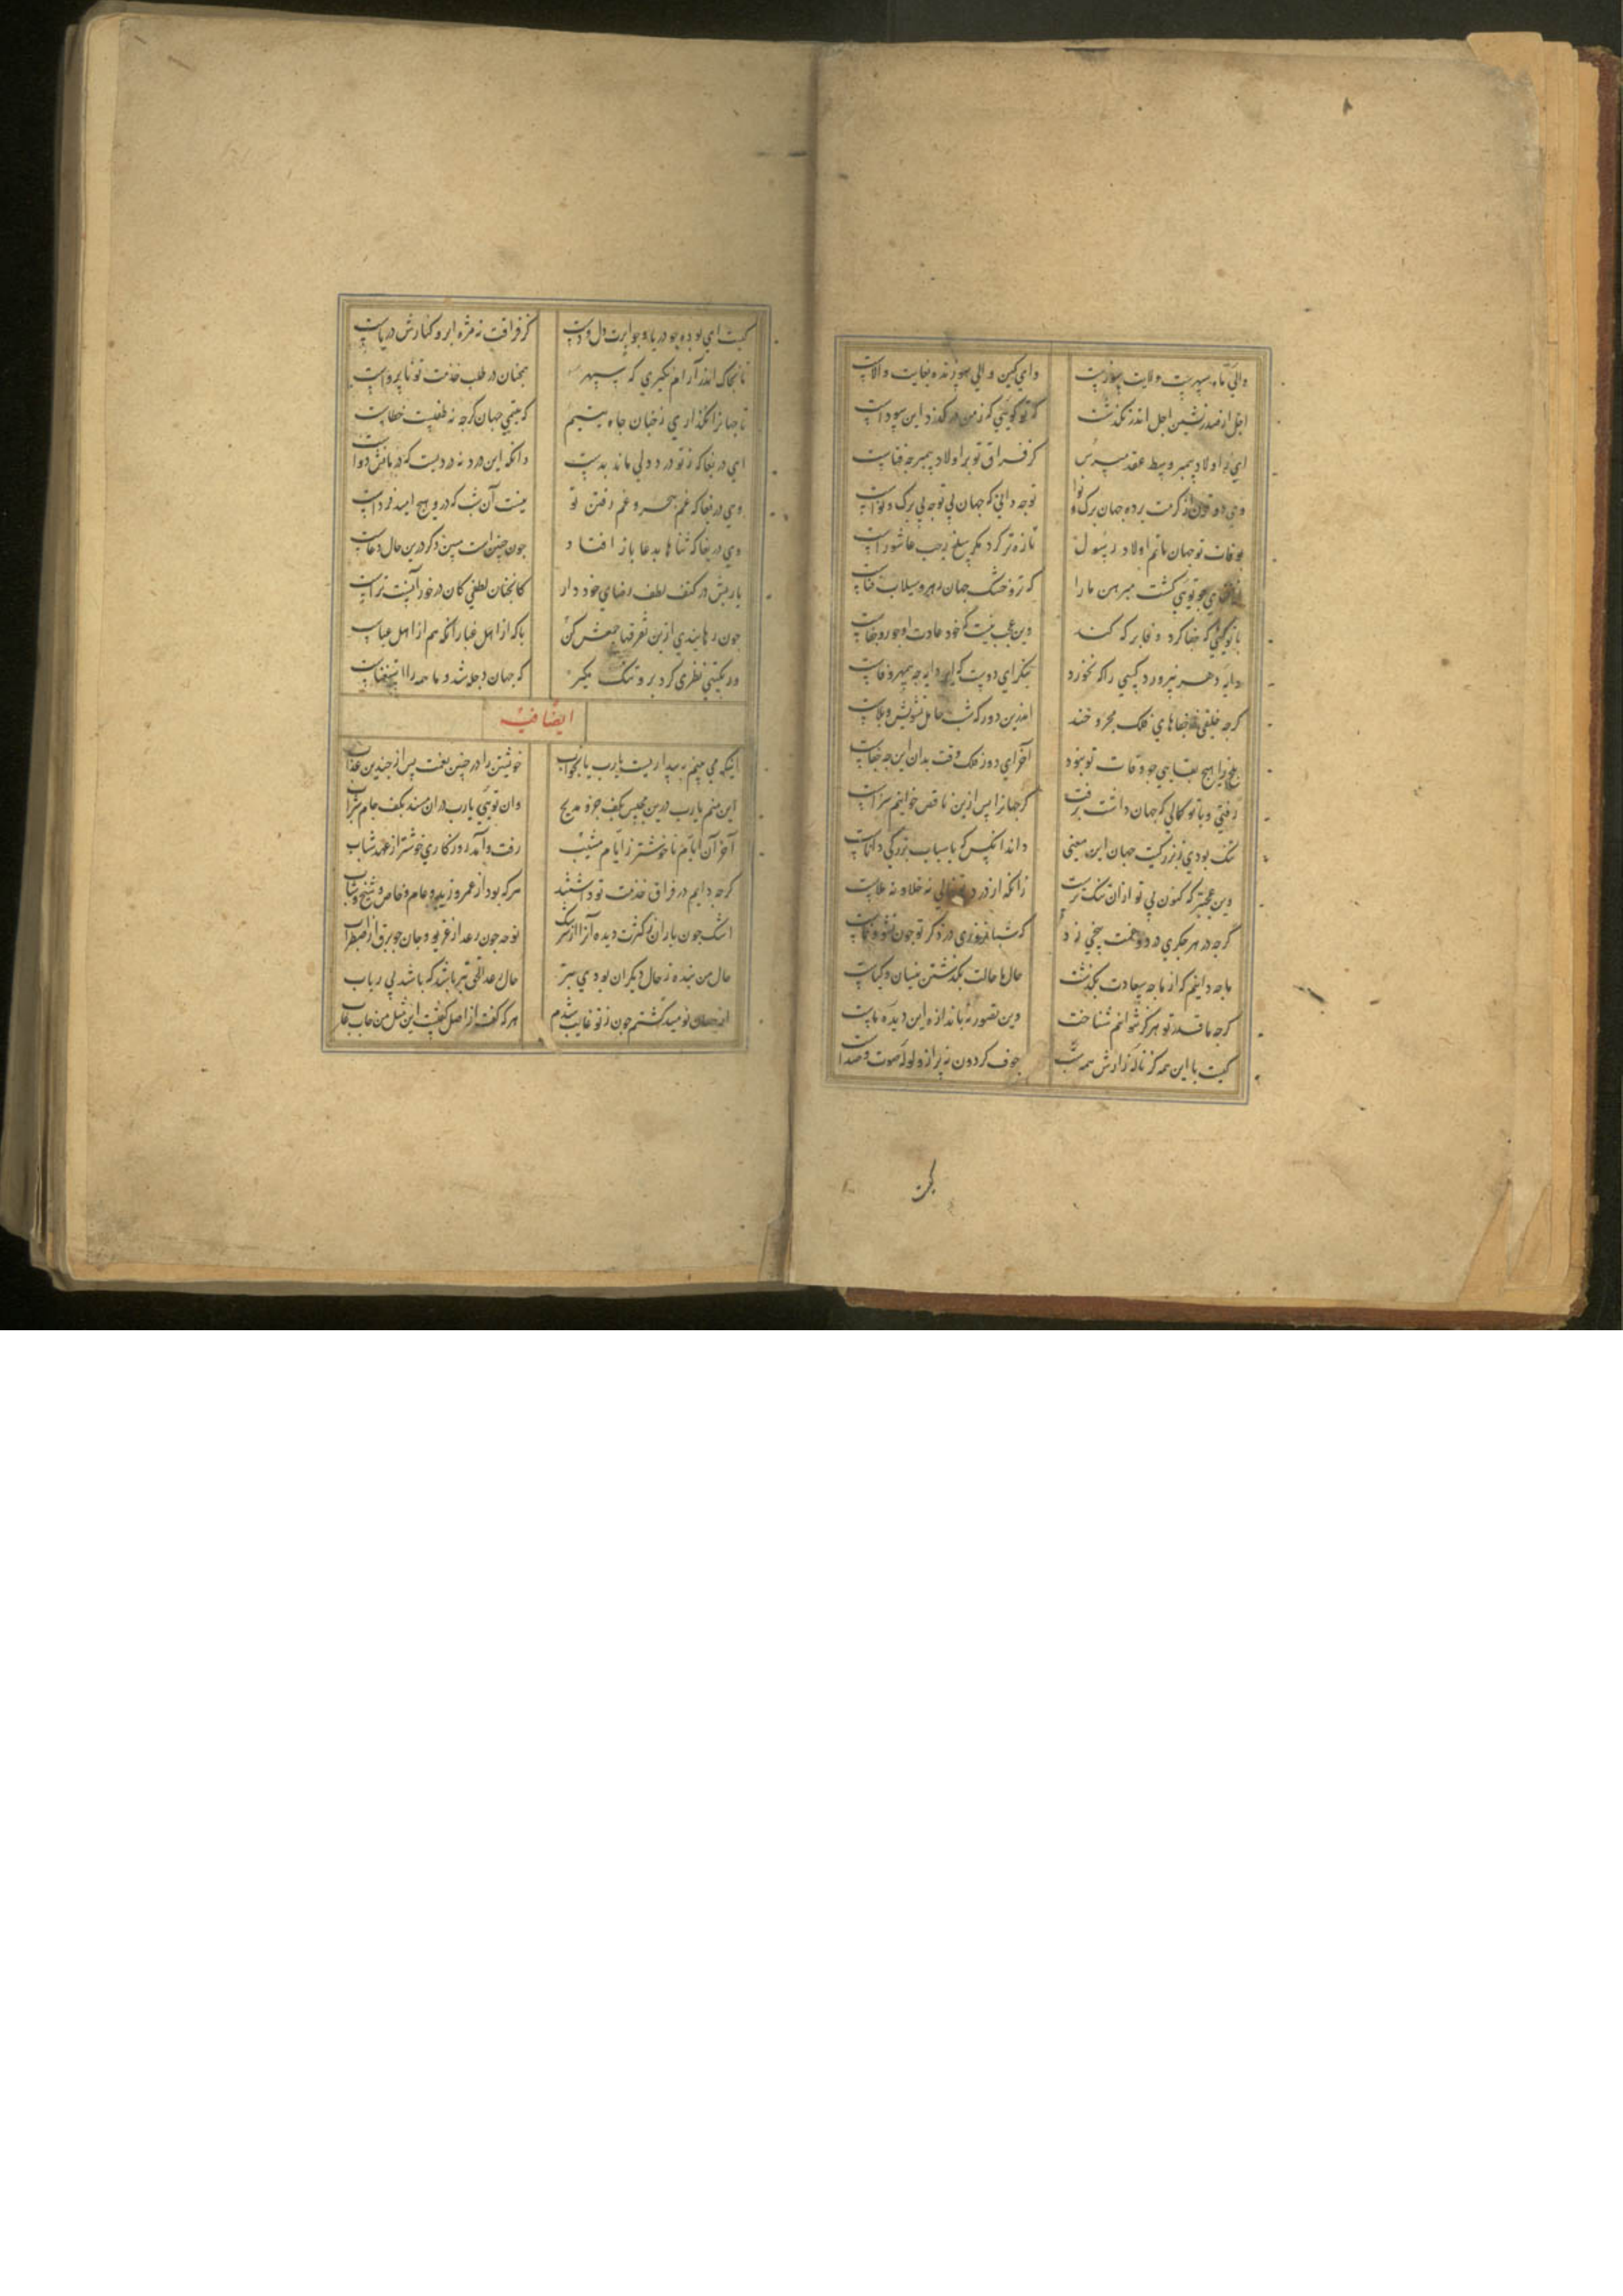 والی ماه سپهرست ولایت پیوست وای کین والی هنوز زنده بغایت والاست
اجل از صدرنشین اجل اندر نگذشت که تو گویی که زمن در گذرد این سوداست
ای ز اولاد پیمبر وسط عقد مپرس کز فراق تو بر اولاد پیمبر چه عناست
وی دو قرن از کرمت برده جهان برگ و نوا توجه دانی که جهان بی توجه بی برک و نواست
بوفات تو جهان ماتم اولاد رسول تازه تر کرد مکر سلخ رجب عاشوراست
جو تویی کشت مبرهن ما را که تر و خشک جهان رهرو سیلاب فناست
با تو کیتی که جفا کرد وفا بر که کند وین عجب نیست که خود عادت او جور و جفاست
دایه دهر نپرورد کسی را که نخورد بنکر ای دوست که این دایه جه بیمهر و وفاست
کرجه خلقی ز جفاهای فلک مجروحند اندرین دور که شب حامل تشویش و بلاست
هیج بقایی جو وفات تو نبود آخر ای دور فلک وقت بدان این جه جفاست
رفتی و با تو کمالی که جهان داشت برفت کر جهانرا پس ازین ناقص خوانیم سزاست
تنک بودی ز بزرکیت جهان این معنی داند آنکس که باسباب بزرکی داناست
وین عجبتر که کنون بی تو از آن تنک ترست زانکه از درد تو خالی نه خلا و نه ملاست
کرجه در هر جکری درد و غمت بیخی زد که شبانروزی در ذکر تو جون نشو و نماست
ما جه دانیم که از ما جه سعادت بگذشت حال ما حالت بگذشتن نیسان و کیاست
کرجه ما قدر تو هرکز نتوانیم شناخت وین تصور نه باندازه این دیده ماست
کیست با این همه کز ناله زارش همه شب جوف کردون نه پر از ولوله صوت و صداست
کیست
کیست ای بوده جو دریا و جو ابرت دل و دست کز فراقت نه مژه ابر و کنارش دریاست
تا بخاک اندر آرام نکیری که سپهر همچنان در طلب خدمت تو ناپرواست
تا جهانرا نکذاری ز جنان جاه یتیم که یتیمی جهان کرجه نه طفلیست خطاست
ای دریغا که ز تو درد دلی ماند بدست وانکه این درد نه دردیست که درمانش دواست
وی دریغا که غم هجر و غم رفتن تو نیست آن شب که درو هیج امید فرداست
وی دریغا که ثناها بدعا باز افتاد جون جنین است بیین ذکر درین حال دعاست
یا ربش در کنف لطف رضای خود دار کانجنان لطفی کان در خور آنست تراست
جون رهانیدی ازین تفرقها جمعش کن با که از اهل عبا زانکه هم از اهل عباست
ور بکیتی نظری کرد برو تنک مکیر که جهان دجله شد و ما همه را استسقاست
ایضا فیه
اینکه می بینم ببیداریست یا رب یا بخواب خویشتن را در جنین نعمت پس از جندین عذاب
این منم یا رب درین مجلس بکف جزو مدیح وان تویی یا رب در آن مسند بکف جام شراب
آخر آن ایام ناخوشتر ز ایام مشیب رفت و آمد روزکاری خوشتر از عهد شباب
کرجه دایم در فراق خدمت تو داشتند هر که بود از عمرو و زید و عام و خاص و شیخ و شاب
اشک جون باران ز کثرت دیده آنرا از سرشک نوحه جون رعد از غریو و جان جو برق از اضطراب
حال من بنده ز حال دیکران بودی بتر حال رعد الحق بتر باشد که باشد بی رباب
نومید کشتم جون ز تو غایب شدم هر که کفت از اصل کفتست این مثل من غاب خاب